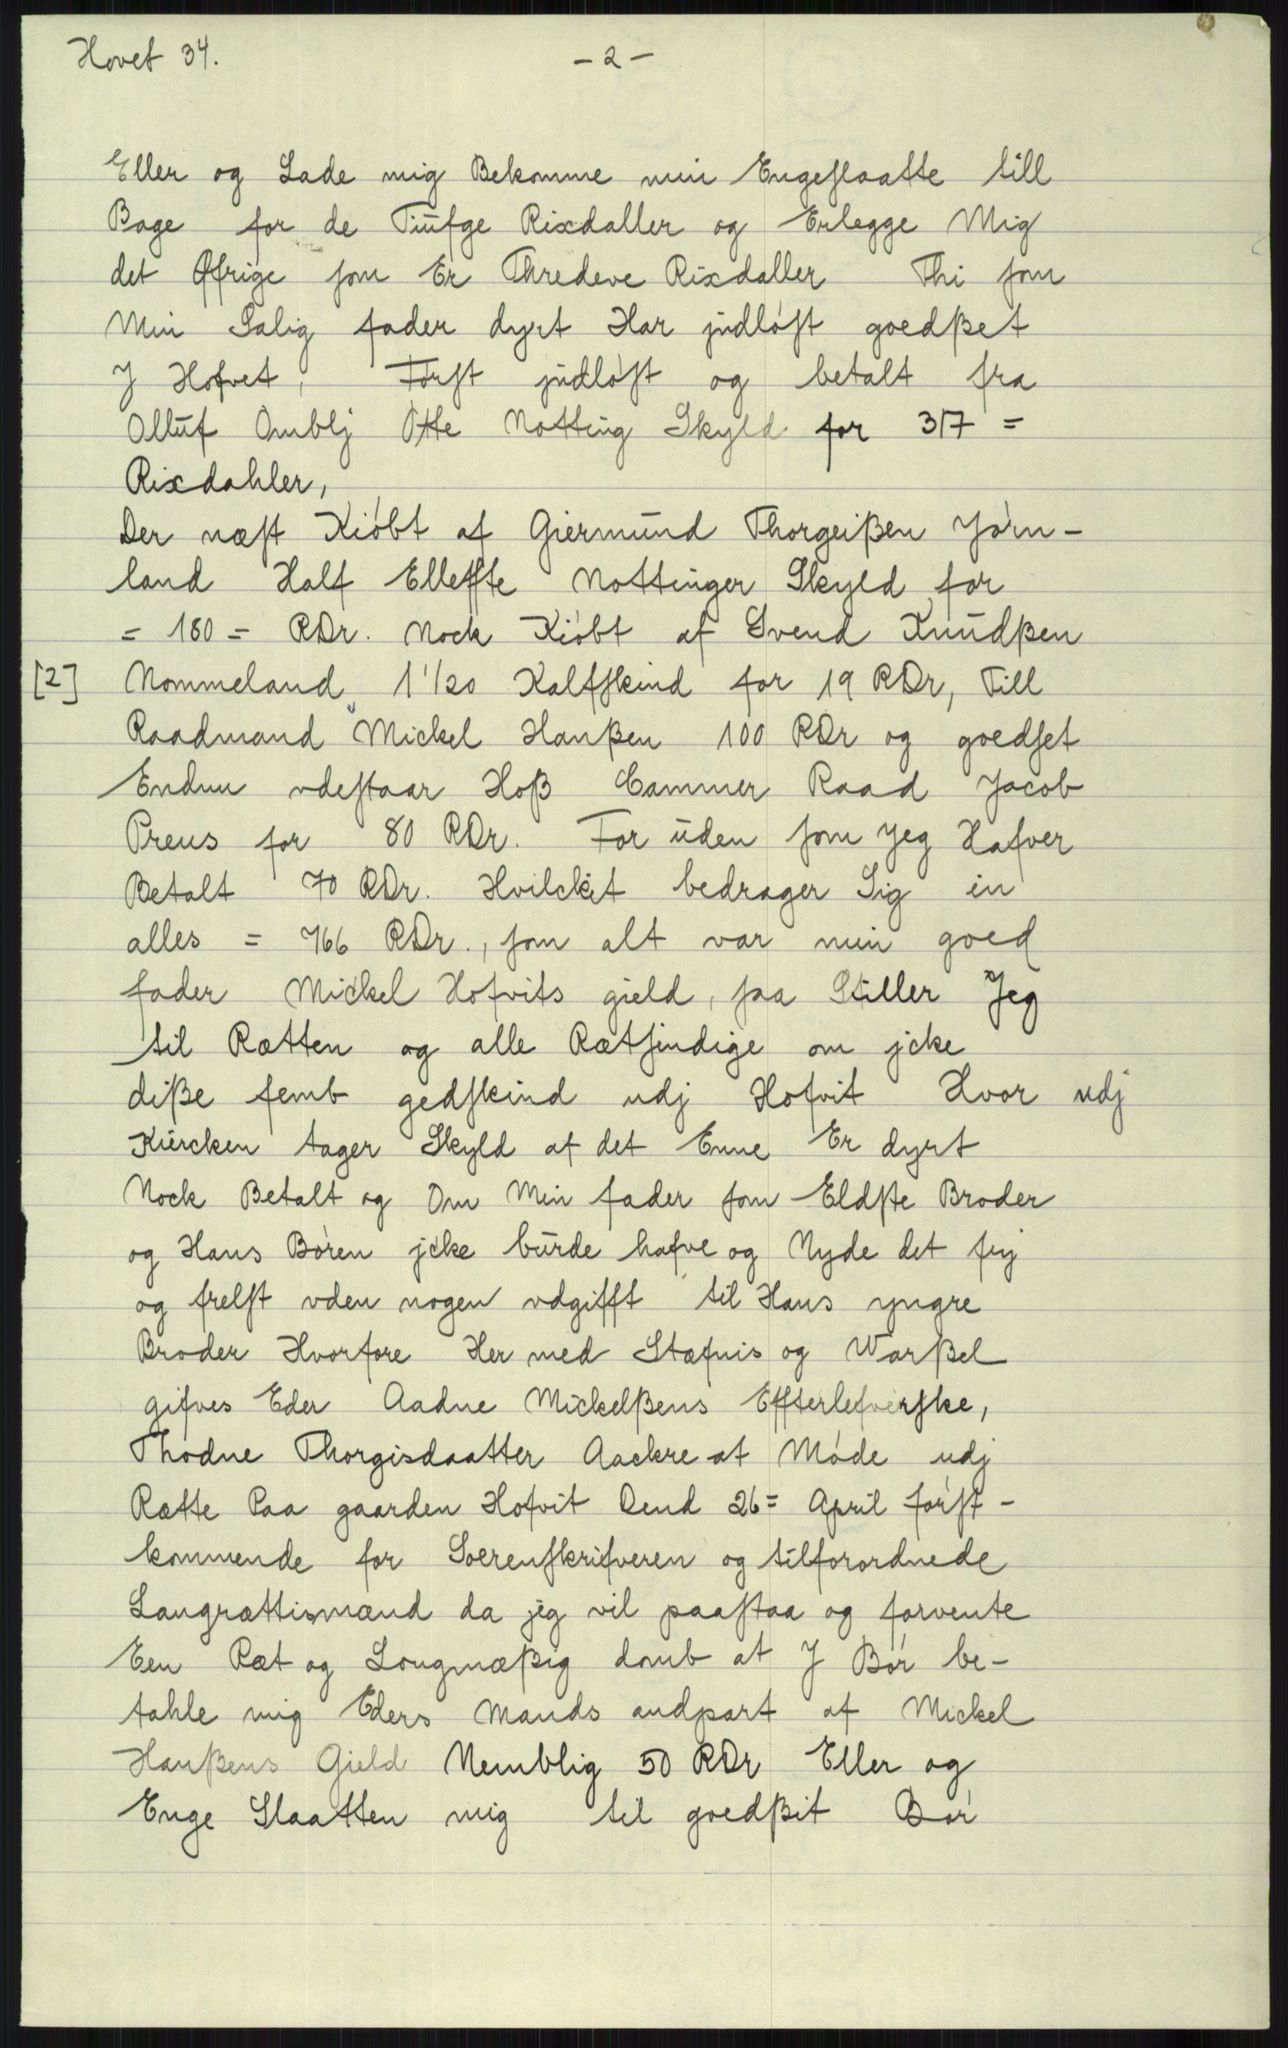 Hovet 34.
- 2 -
Eller og Lade mig Bekomme min Engeslaatte till
Bage for de Tiufge Rixdaller og Erlegge Mig
det Øfrige som Er Thredeve Rixdaller Thi som
Min Salig fader dyrt Har jndløst goedßet
J Hofvet, Først jndløst og betalt fra
Olluf Omblj Otte Notting Skyld for 317 =
Rixdahler,
Der næst Kiøbt af Giermund Thorgeißen Jørn-
land Half Elleffte Nottinger Skyld for
= 180 = RDr. Nock Kiøbt af Svend Knudßen
[2] Nommeland 1 1/20 Kalfskind for 19 RDr, Till
Raadmand Mickel Hanßen 100 RDr og goedset
Endnu vdestaar Hoß Cammer Raad Jacob
Preus for 80 RDr. For uden som Jeg Hafver
Betalt 70 RDr. Hvilckit bedrager Sig in
alles = 766 RDr., som alt var min goed
fader Mickel Hofvits gield, saa Stiller Jeg
til Rætten og alle Rætsindige om jcke
diße femb gedskind udj Hofvit Hvor udj
Kircken tager Skyld af det Enne Er dyrt
Nock Betalt og Om Min fader som Eldste Broder
og Hans Børen jcke burde hafve og Nyde det frj
og frelst vden nogen vdgifft til Hans yngre
Broder Hvorfore Her med Stæfnis og Warßel
gifves Eder Aadne Mickelßens Effterlefverske,
Thodne Thorgisdaatter Aackre at Møde udj
Rætte Paa gaarden Hofvit Dend 26= April først-
kommende for Soerenskrifveren og tilforordnede
Laugrættismænd da jeg vil paastaa og forvente
Een Ræt og Lougmæßig domb at J Bør be-
tahle mig Eders Mands andpart af Mickel
Hanßens Gield Nemblig 50 RDr Eller og
Enge Slaatten mig til goedßit Bør